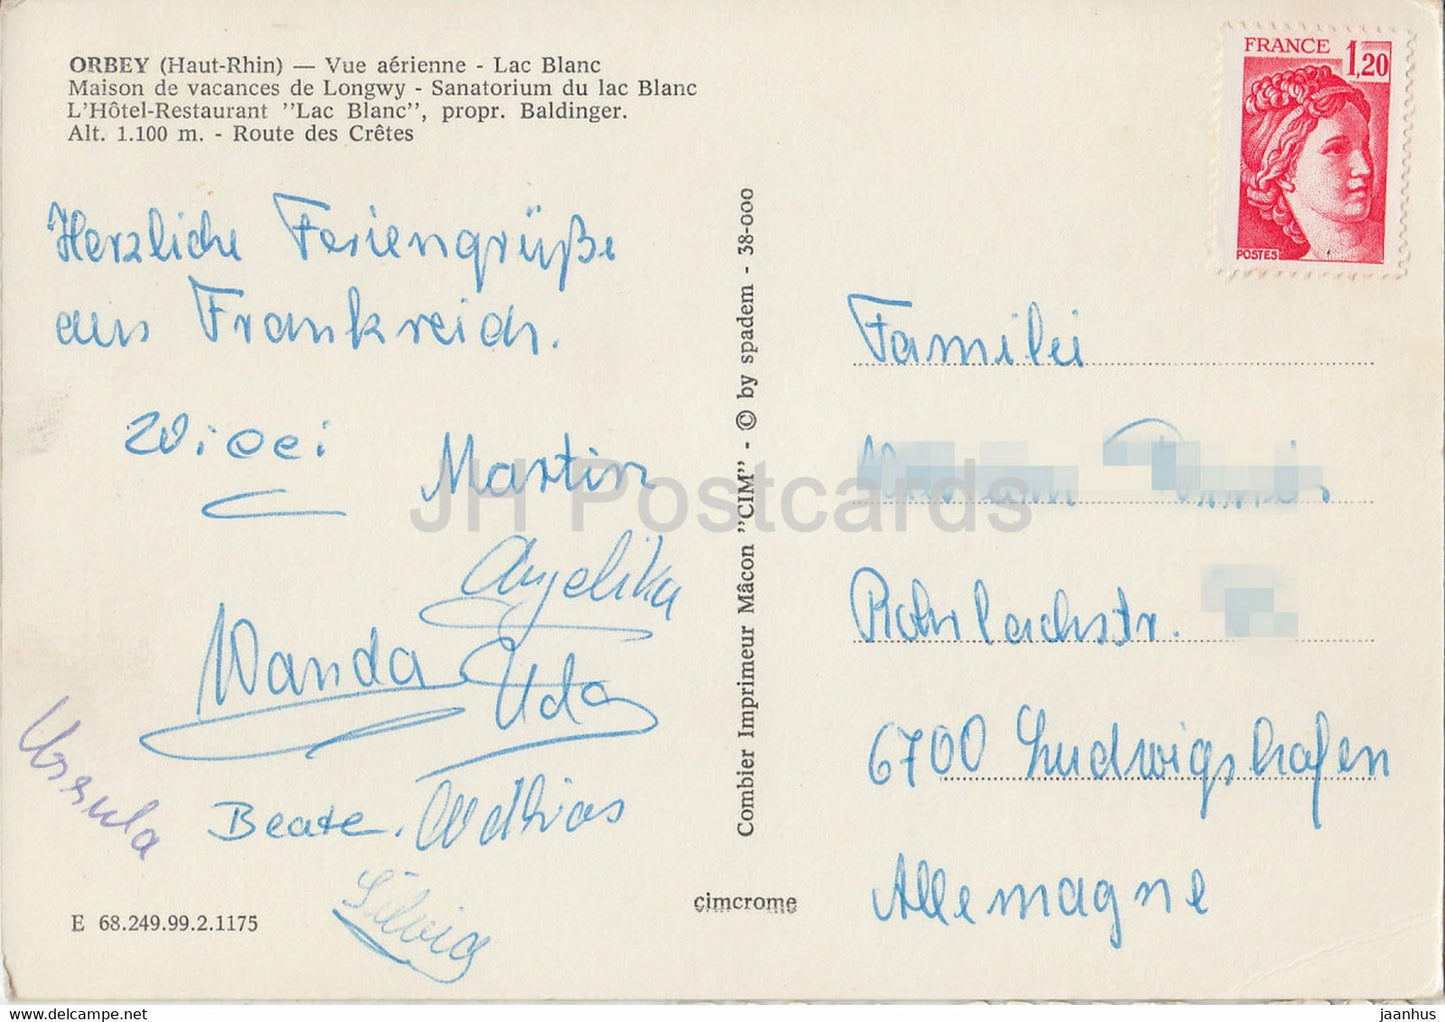 ORBEY (Haut-Rhin) — Vue aérienne - Lac Blanc
Maison de vacances de Longwy - Sanatorium du lac Blanc
L'Hôtel-Restaurant "Lac Blanc", propr. Baldinger.
Alt. 1.100 m. - Route des Crêtes
FRANCE 1,20
POSTES
Herzliche Feriengrüße
aus Frankreich.
Martin
Angelika
Wanda
Uda
Ursula
Beate.
Silvia
E 68.249.99.2.1175
Combier Imprimeur Mâcon "CIM" - © by spadem - 38-000
cimcrome
Familie
Rohrlachstr.
6700 Ludwigshafen
Allemagne
JH Postcards
hippostcard.com
jaanhus